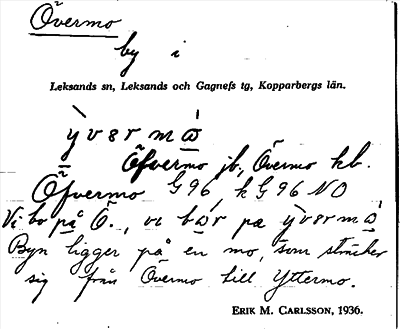 Övermo
by i
Leksands sn, Leksands och Gagnefs tg, Kopparbergs län.
ỳvərmώ̲
Öfvermo jb, Övermo kb.
Öfvermo G96, k G96 NO
Vi bo på Ö., vi bω̲r pæ ỳvərmώ̲
Byn ligger på en mo, som sträcker
sig från Övermo till Yttermo.
ERIK M. CARLSSON, 1936.